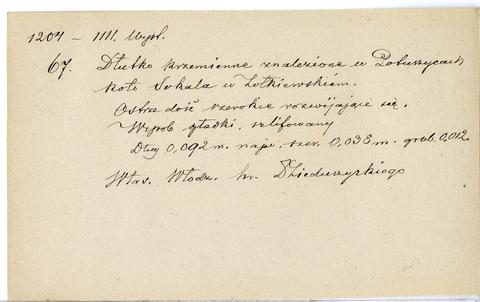 1204 – IIII. Wyst.
67. Dłutko krzemienne znalezione w Poturzycach
koło Sokala w Żółkiewskiem.
Ostrze dość szerokie rozwijające się.
Wyrób gładki, szlifowany
Dług 0,092 m. najw. szer. 0,038 m. grub. 0,012.
Włas. Włodz. hr. Dzieduszyckiego